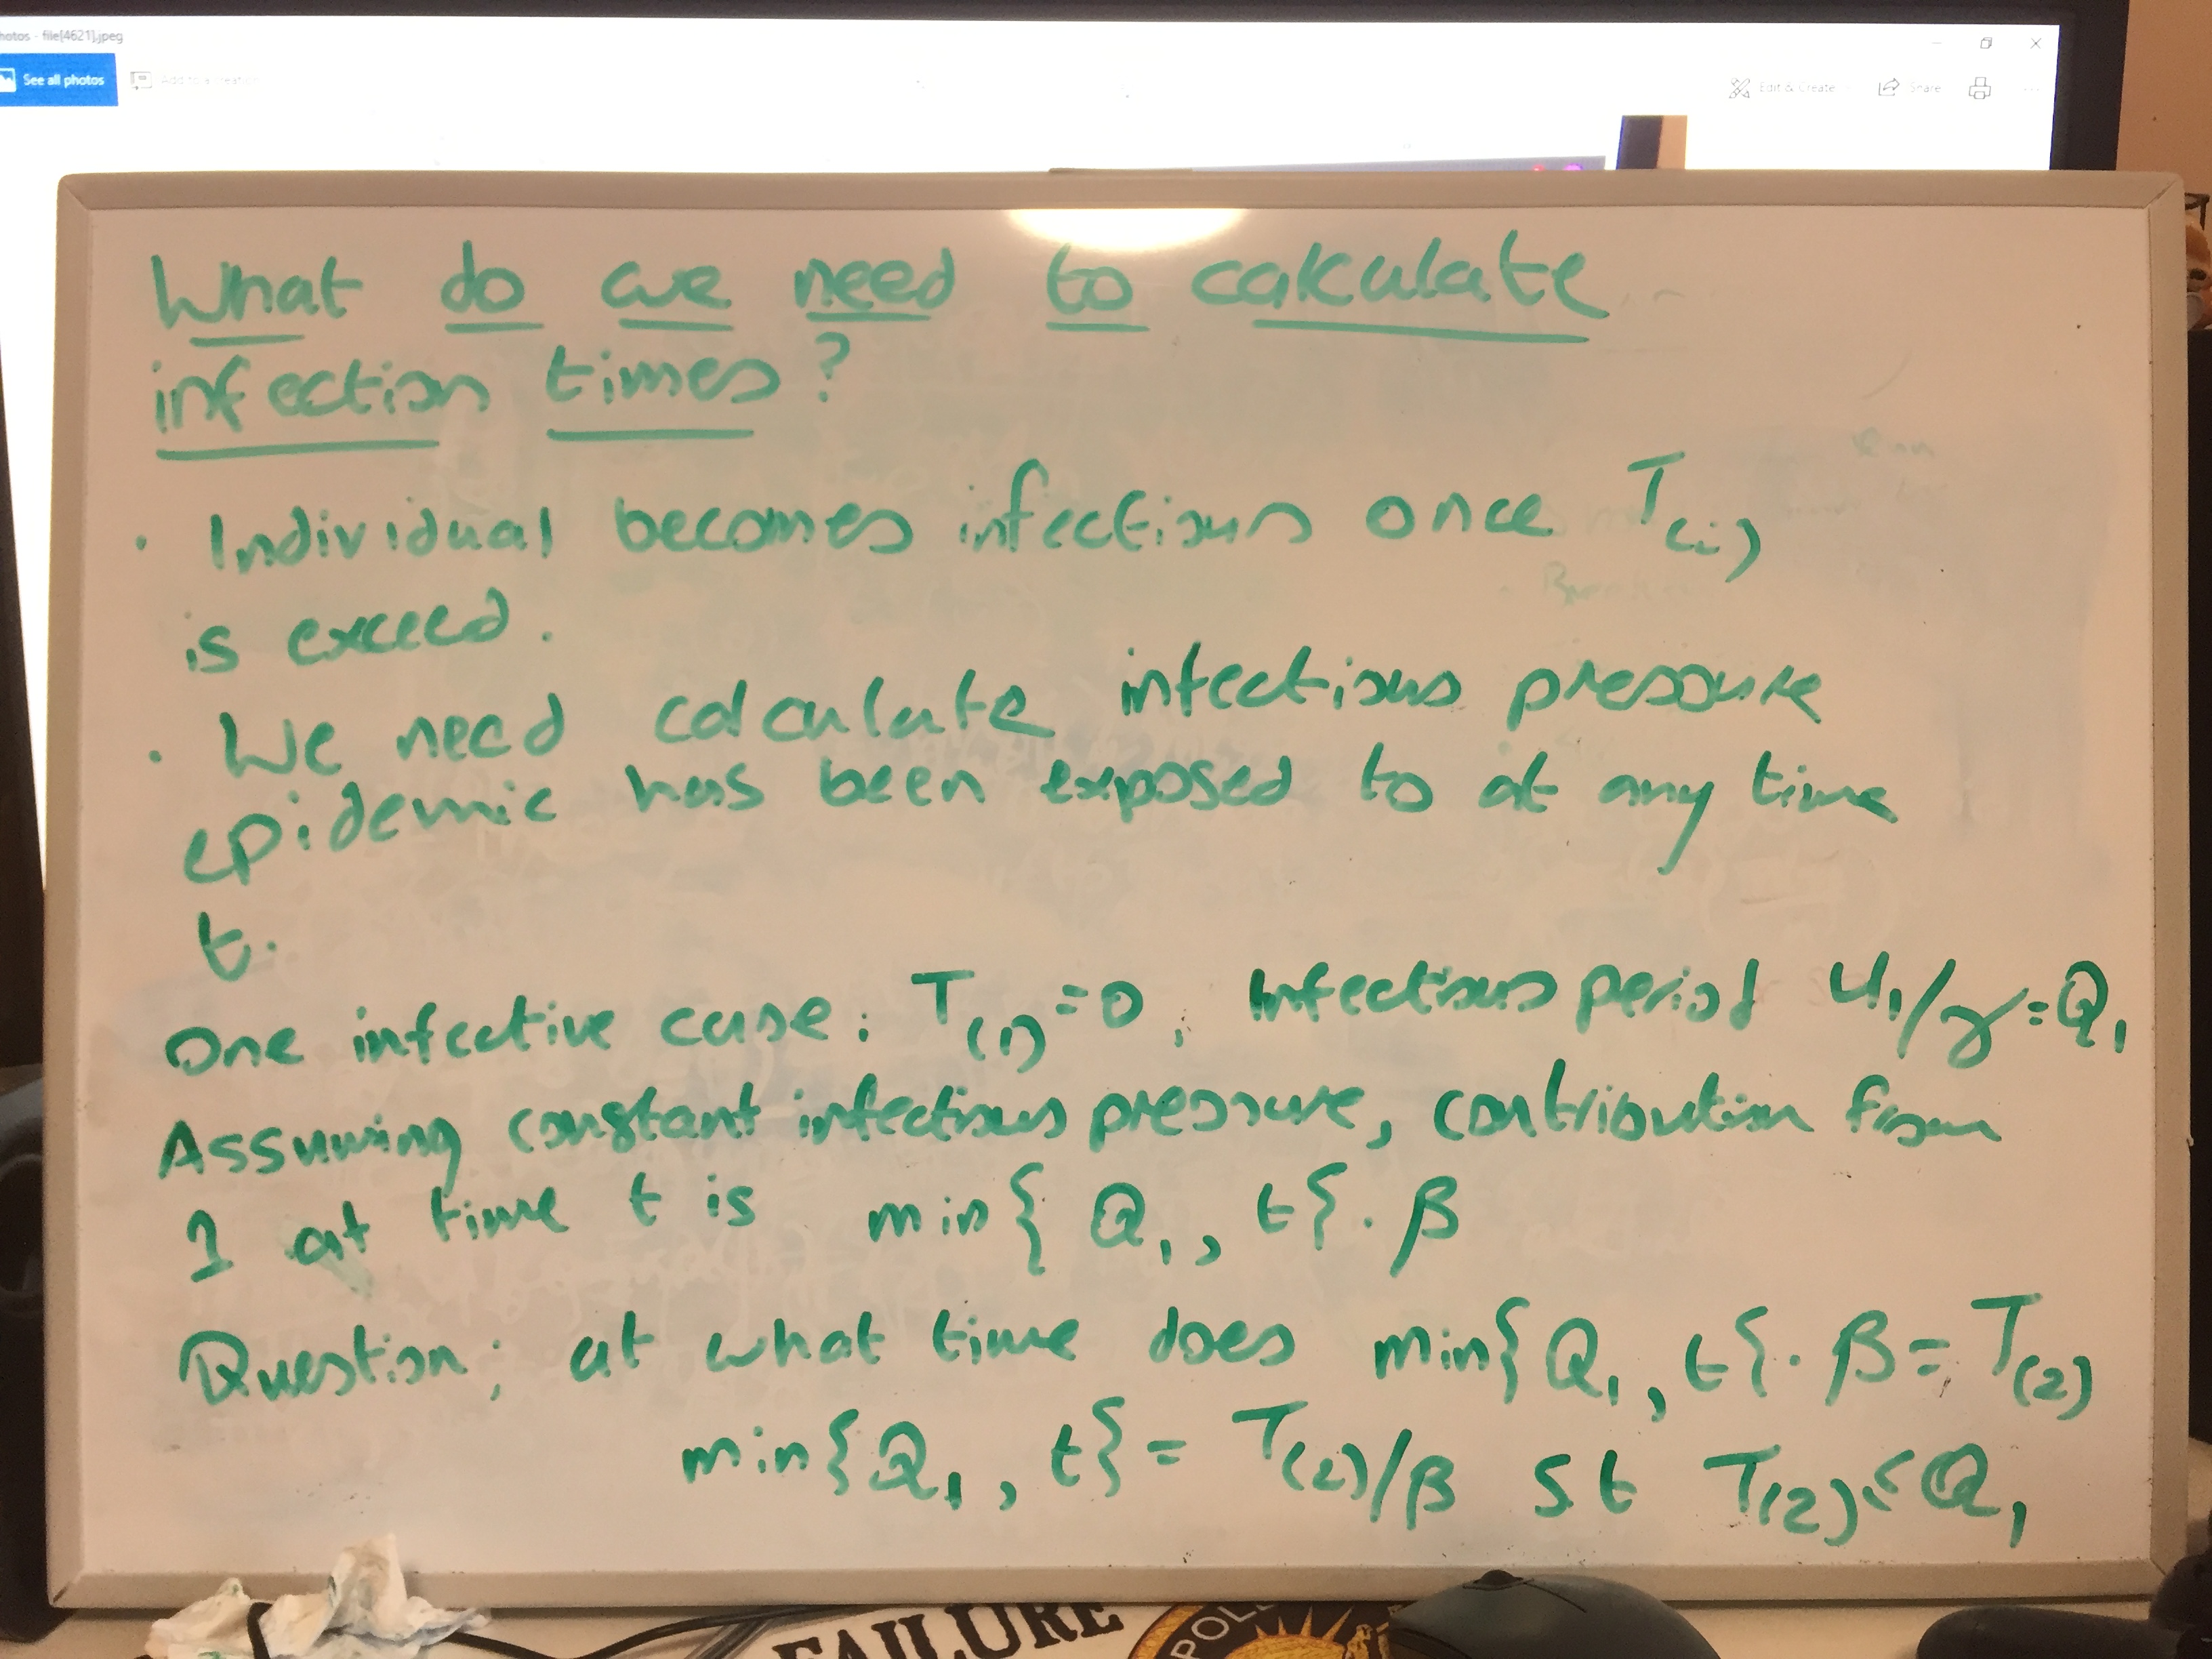 hotos - file[4621].jpeg
See all photos
Add to a creation
Edit & Create
Share
What do we need to calculate
infection times?
· Individual becomes infectious once T(i)
is exceed.
· We need calculate infectious pressure
epidemic has been exposed to at any time
t.
One infective case: T(1)=0, Infectious period U1/γ=Q1
Assuming constant infectious pressure, contribution from
1 at time t is min{Q1, t}.β
Question; at what time does min{Q1, t}.β=T(2)
min{Q1, t} = T(2)/β st T(2)<Q1
FAILURE
POL